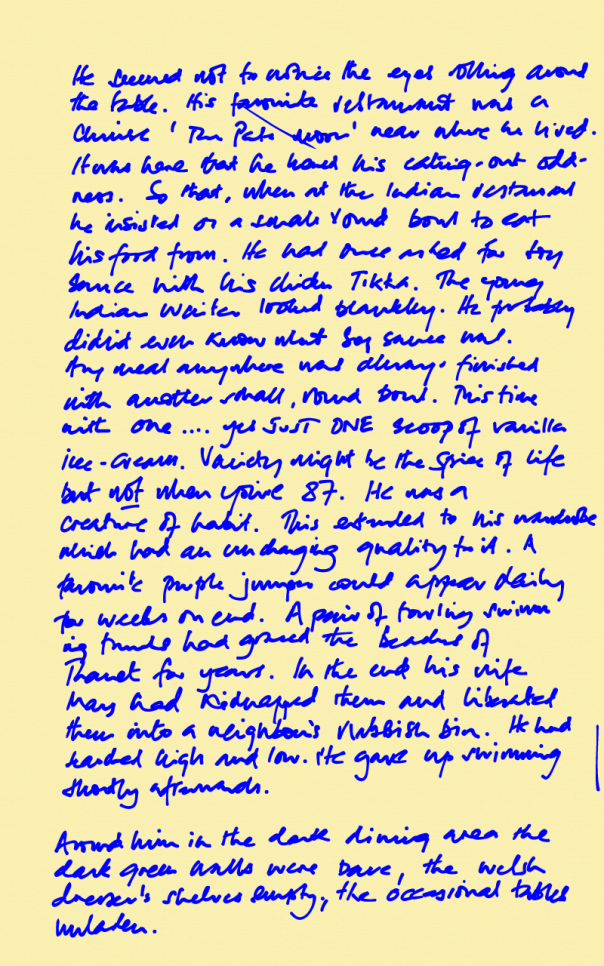 He seemed not to notice the eyes rolling around
the table. His favourite restaurant was a
Chinese 'The Pale Moon' near where he lived.
It was here that he honed his eating-out odd-
ness. So that, when at the Indian restaurant
he insisted on a small round bowl to eat
his food from. He had once asked for soy
sauce with his chicken Tikka. The young
Indian waiter looked blankley. He probably
didn't even know what soy sauce was.
Any meal anywhere was always finished
with another small, round bowl. This time
with one .... yes JUST ONE scoop of vanilla
ice-cream. Variety might be the spice of life
but not when you're 87. He was a
creature of habit. This extended to his wardrobe
which had an unchanging quality to it. A
favourite purple jumper could appear daily
for weeks on end. A pair of towling swimm
ing trunks had graced the beaches of
Thanet for years. In the end his wife
Mary had kidnapped them and liberated
them into a neighbour's rubbish bin. He had
searched high and low. He gave up swimming
shortly afterwards.
Around him in the dark dining area the
dark green walls were bare, the welsh
dresser's shelves empty, the occasional tables
unladen.